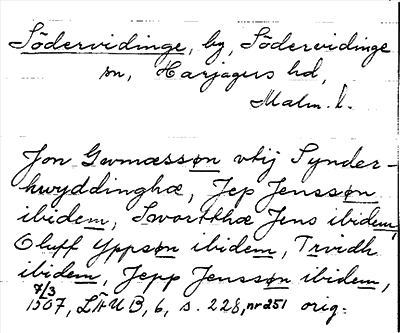 Södervidinge, by, Södervidinge
sn, Harjagers hd,
Malm. l.
Jon Gvmæssøn vtij Synder-
hwyddinghæ, Jep Jenssøn
ibidem, Swortthæ Jens ibidem,
Oluff Yppsøn ibidem, Trvidh
ibidem, Jepp Jenssøn ibidem,
7/3
1507, LÄUB, 6, s. 228, nr 251 orig.